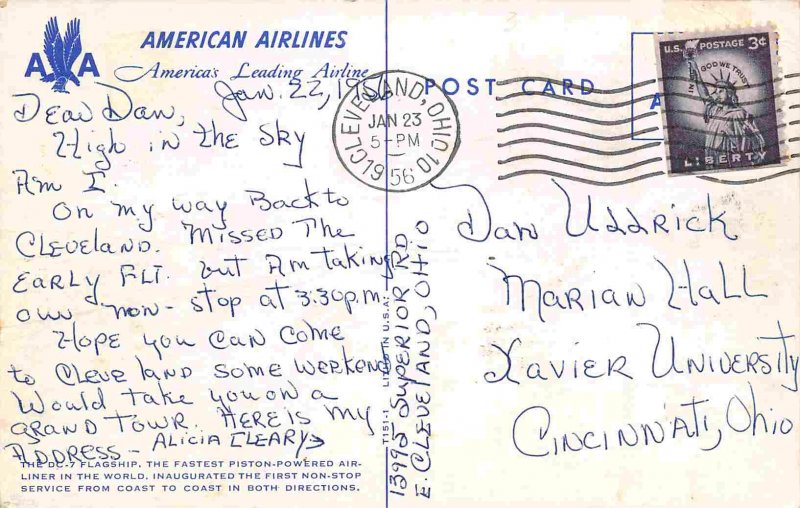 AMERICAN AIRLINES
AA
America's Leading Airline
Jan. 22, 1956
Dear Dan,
High in the Sky
Am I.
On my way Back to
Cleveland. Missed The
Early Flt. but Am taking
our non-stop at 3:30p.m.
Hope you can come
to Cleveland some weekend
Would take you on a
Grand Tour. Here is my
Address - Alicia Cleary
THE DC-7 FLAGSHIP, THE FASTEST PISTON-POWERED AIR-
LINER IN THE WORLD, INAUGURATED THE FIRST NON-STOP
SERVICE FROM COAST TO COAST IN BOTH DIRECTIONS.
T151-1
IN U.S.A.
13995 Superior Rd
E. Cleveland, Ohio
POST CARD
CLEVELAND, OHIO 10
JAN 23
5-PM
1956
U.S. POSTAGE 3¢
IN GOD WE TRUST
LIBERTY
Dan Uddrick
Marian Hall
Xavier University
Cincinnati, Ohio